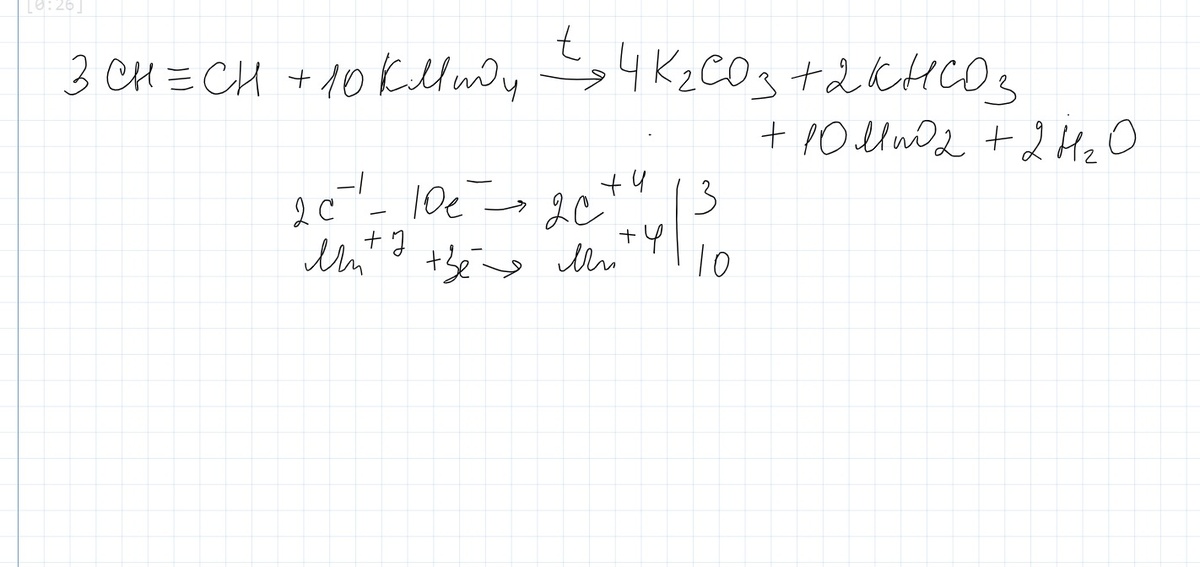 [0:26]
3 CH ≡ CH + 10 KMnO₄ →ᵗ 4 K₂CO₃ + 2 KHCO₃
+ 10 MnO₂ + 2 H₂O
2C⁻¹ - 10e⁻ → 2C⁺⁴ | 3
Mn⁺⁷ + 3e⁻ → Mn⁺⁴ | 10